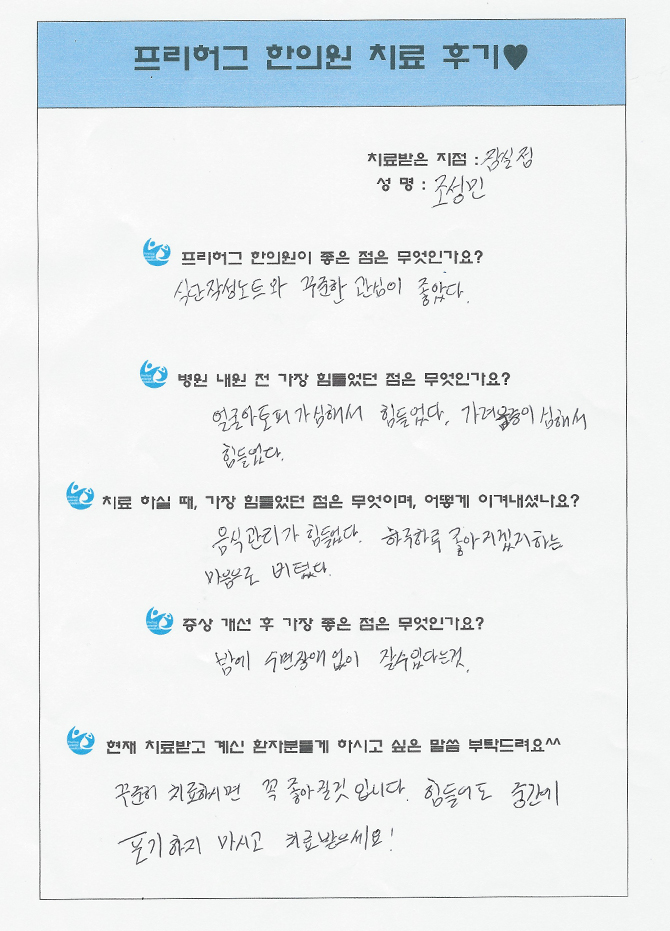 프리허그 한의원 치료 후기♥
치료받은 지점 : 잠실점
성 명 : 조성민
프리허그 한의원이 좋은 점은 무엇인가요?
식단작성노트와 꾸준한 관심이 좋았다.
병원 내원 전 가장 힘들었던 점은 무엇인가요?
얼굴아토피가심해서 힘들었다, 가려움증이 심해서
힘들었다.
치료 하실 때, 가장 힘들었던 점은 무엇이며, 어떻게 이겨내셨나요?
음식관리가 힘들었다. 하루하루 좋아지겠지하는
마음으로 버텼다.
증상 개선 후 가장 좋은 점은 무엇인가요?
밤에 수면장애없이 잘수있다는것.
현재 치료받고 계신 환자분들게 하시고 싶은 말씀 부탁드려요^^
꾸준히 치료하시면 꼭 좋아질것 입니다. 힘들어도 중간에
포기하지 마시고 치료받으세요!